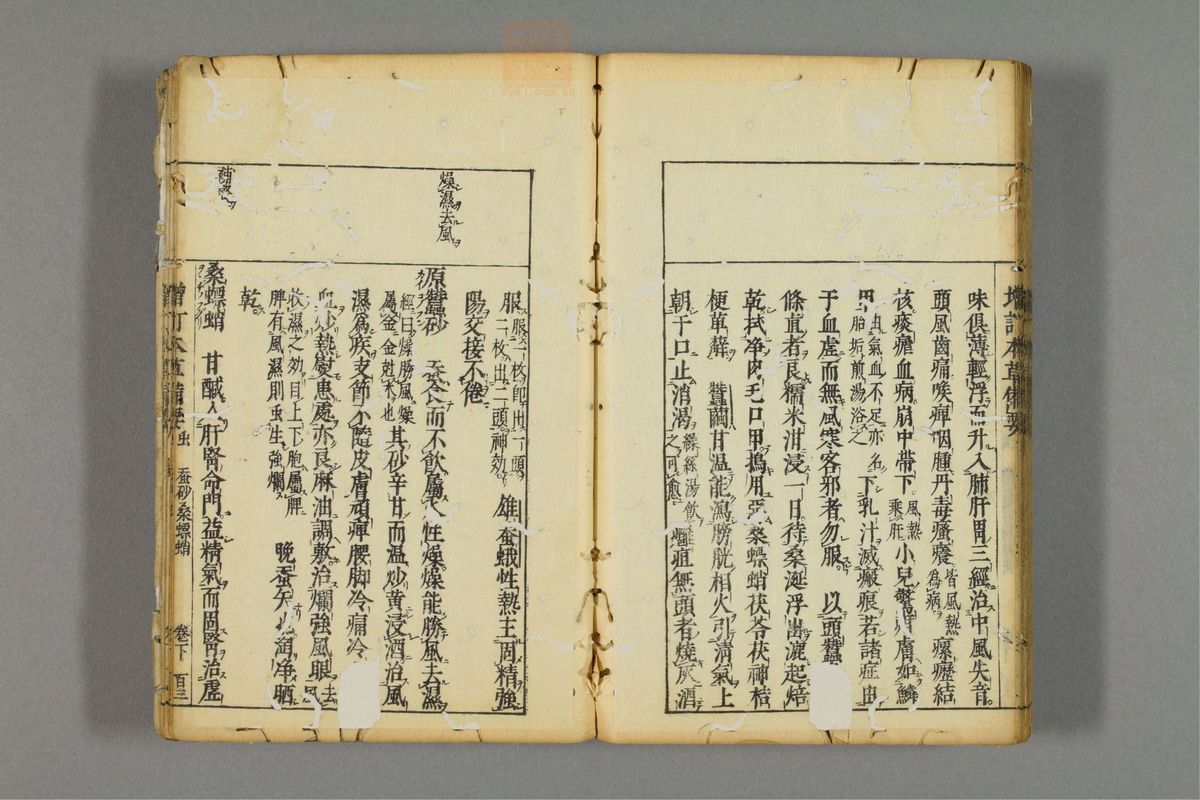 味俱薄輕浮而升入肺肝胃三經治中風失音
頭風齒痛喉痺咽腫丹毒瘙癢皆風熱為病瘰癧結
核痰瘧血病崩中帶下風熱乘肝小兒驚疳膚如鱗
由氣血不足亦名胎垢煎湯浴之下乳汁滅瘢痕若諸症由
于血虛而無風寒客邪者勿服 以頭蠶
條直者良糯米泔浸一日待桑涎浮出漉起焙
乾拭净肉毛口甲搗用惡桑螵蛸茯苓茯神桔
梗萆薢 蠶繭甘温能瀉膀胱相火引清氣上
朝于口止消渴繰絲湯飲之可愈癰疽無頭者燒灰酒
服服一枚即出一頭二枚出二頭神効 雄蚕蛾性熱主固精強
陽交接不倦
燥濕去風
原蠶砂 蚕食而不飲屬火性燥燥能勝風去濕
經曰燥勝風燥屬金金尅木也其砂辛甘而温炒黄浸酒治風
濕爲疾支節不隨皮膚頑痺腰脚冷痛冷
血炒熱熨患處亦良麻油調敷治爛強風眼去風
收濕之効目上下胞屬脾脾有風濕則虫生強爛 晚蚕矢 淘净晒
乾
補腎
桑螵蛸 甘醎入肝腎命門益精氣而固腎治虛
增訂本草備要 虫 蚕砂 桑螵蛸 卷下 百三
增訂本草備要